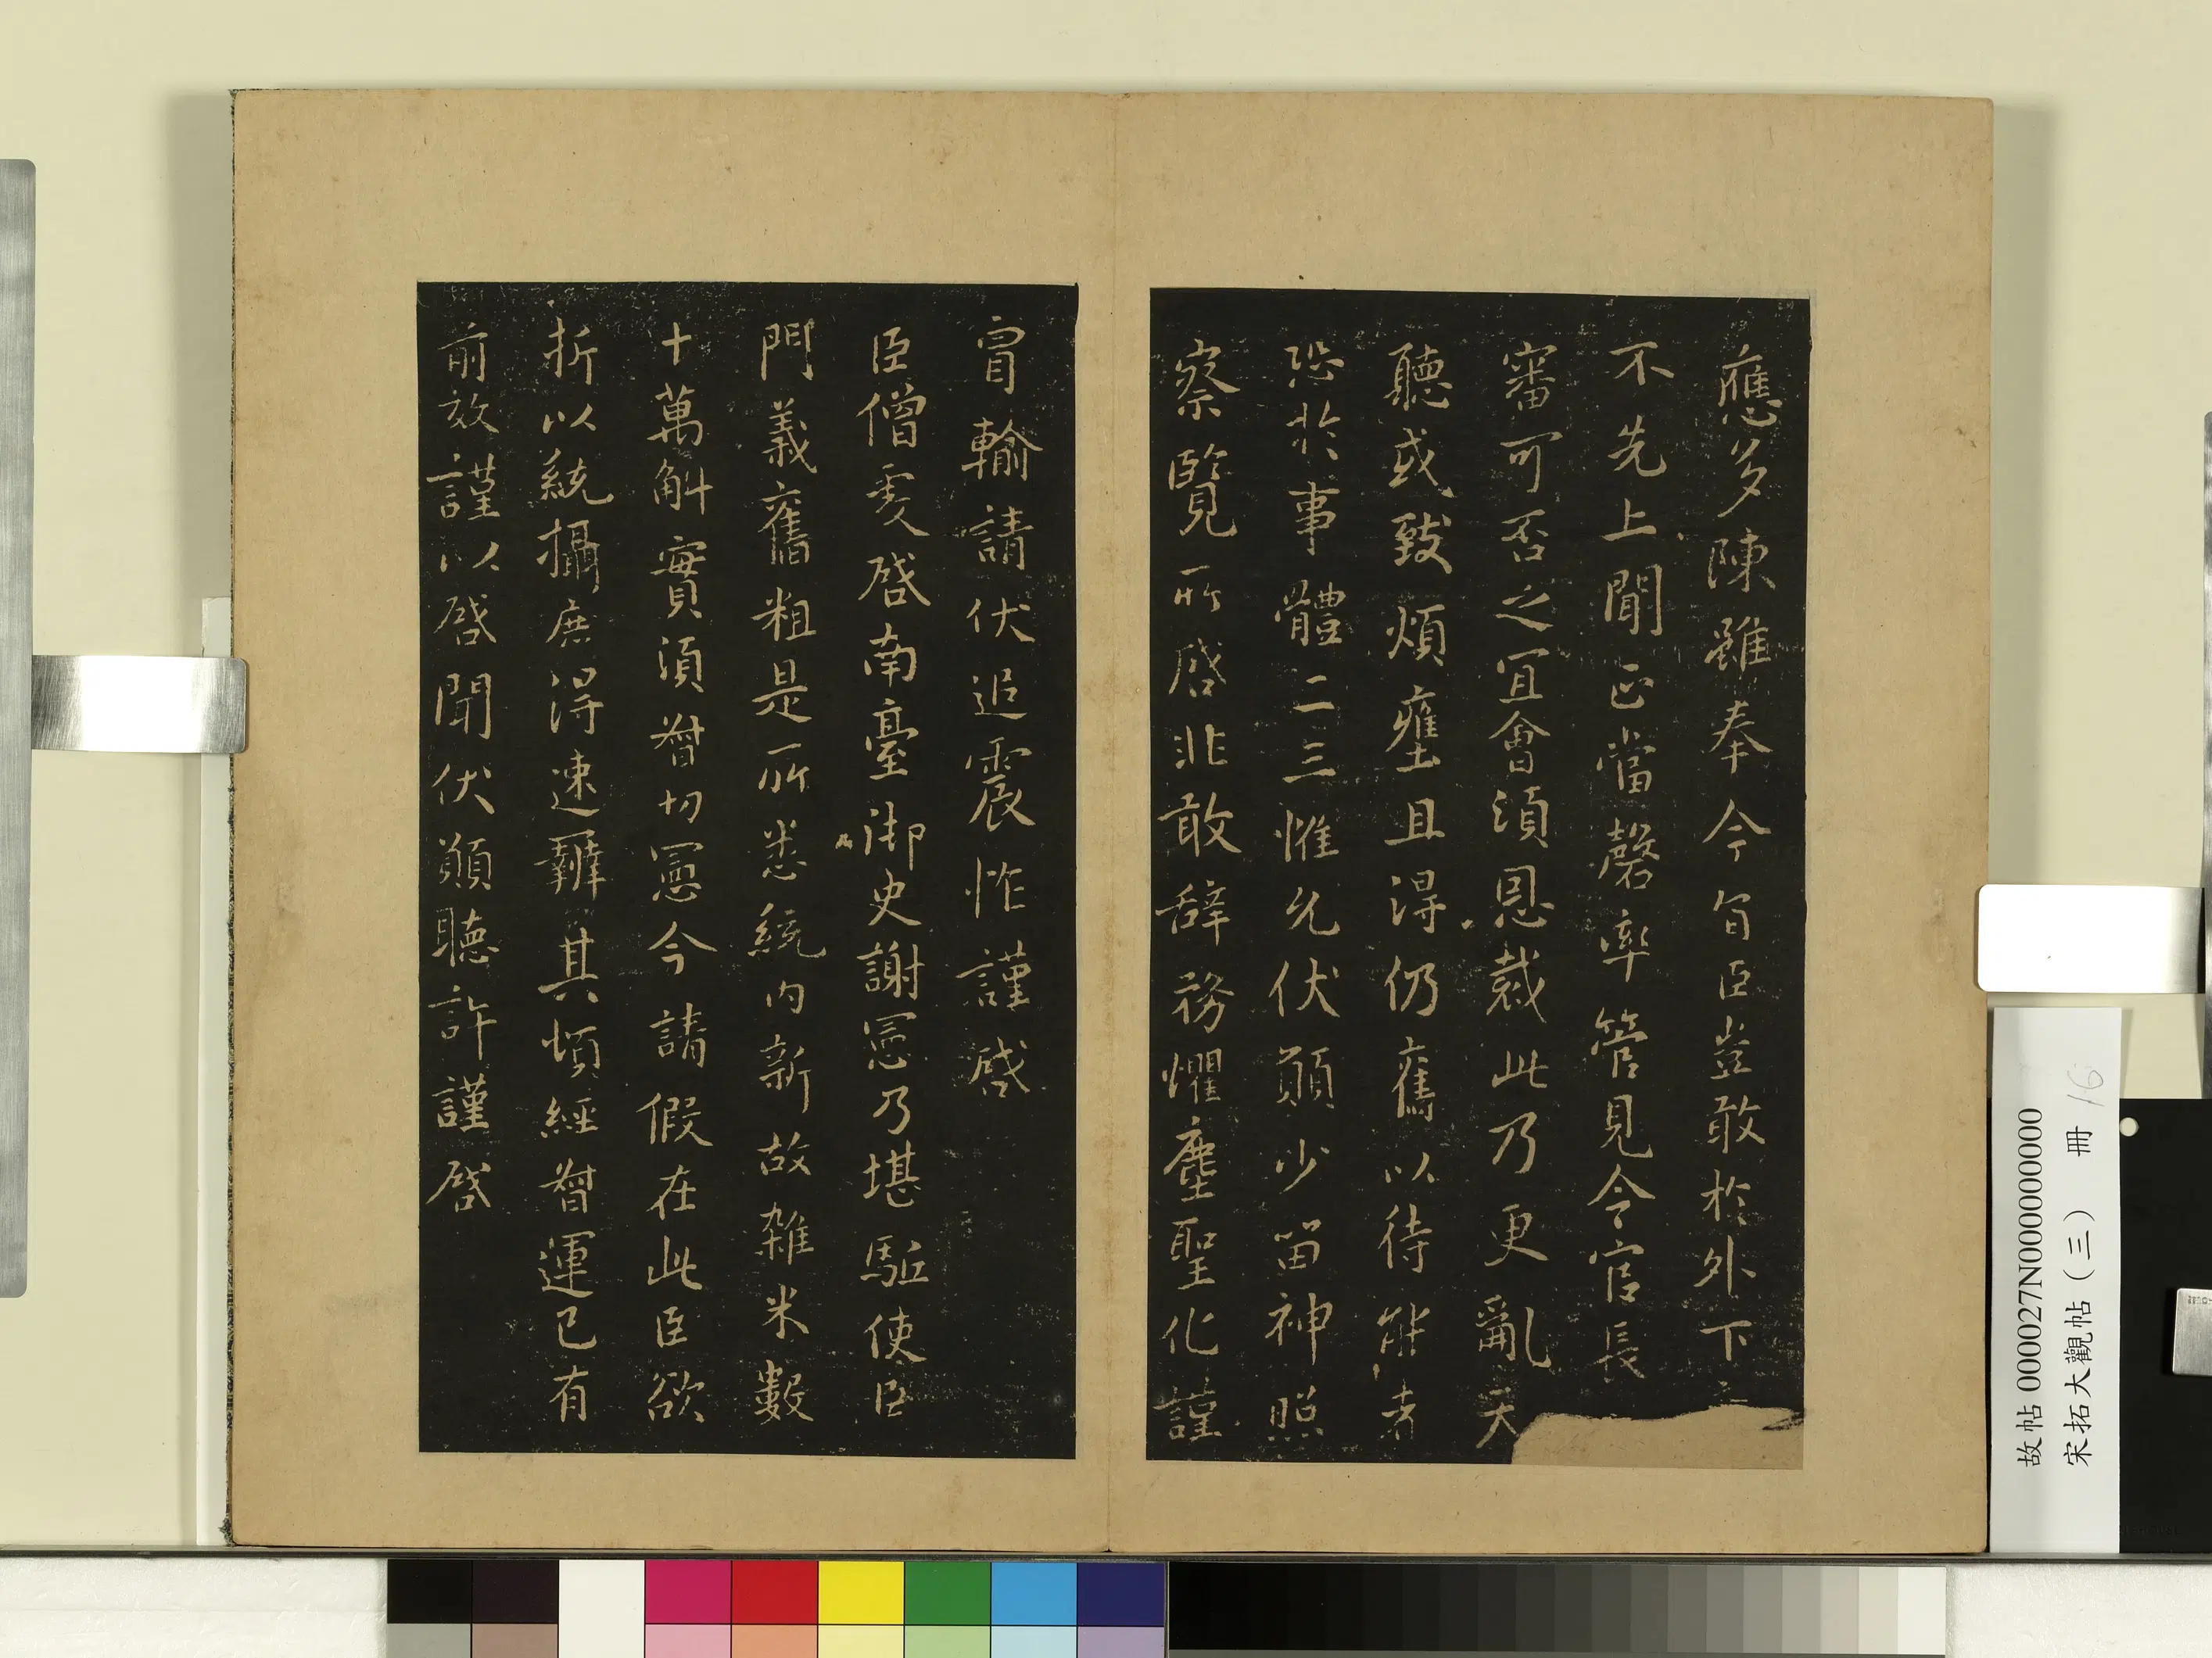 應多陳雖奉今旨臣豈敢於外下之
不先上聞正當罄率管見今官長
審可否之宜會須恩裁此乃更亂天
聽或致煩壅且得仍舊以待能者
恐於事體二三惟允伏願少留神照
察覽所啓非敢辭務懼塵聖化謹
冒輸請伏追震怍謹啓
臣僧虔啓南臺御史謝憲乃堪驅使臣
門義舊粗是所悉統內新故雜米數
十萬斛實須督切憲今請假在此臣欲
折以統攝庶得速辦其頃經督運已有
前效謹以啓聞伏願聽許謹啓
故帖 000027N000000000
宋拓大觀帖(三) 冊 16